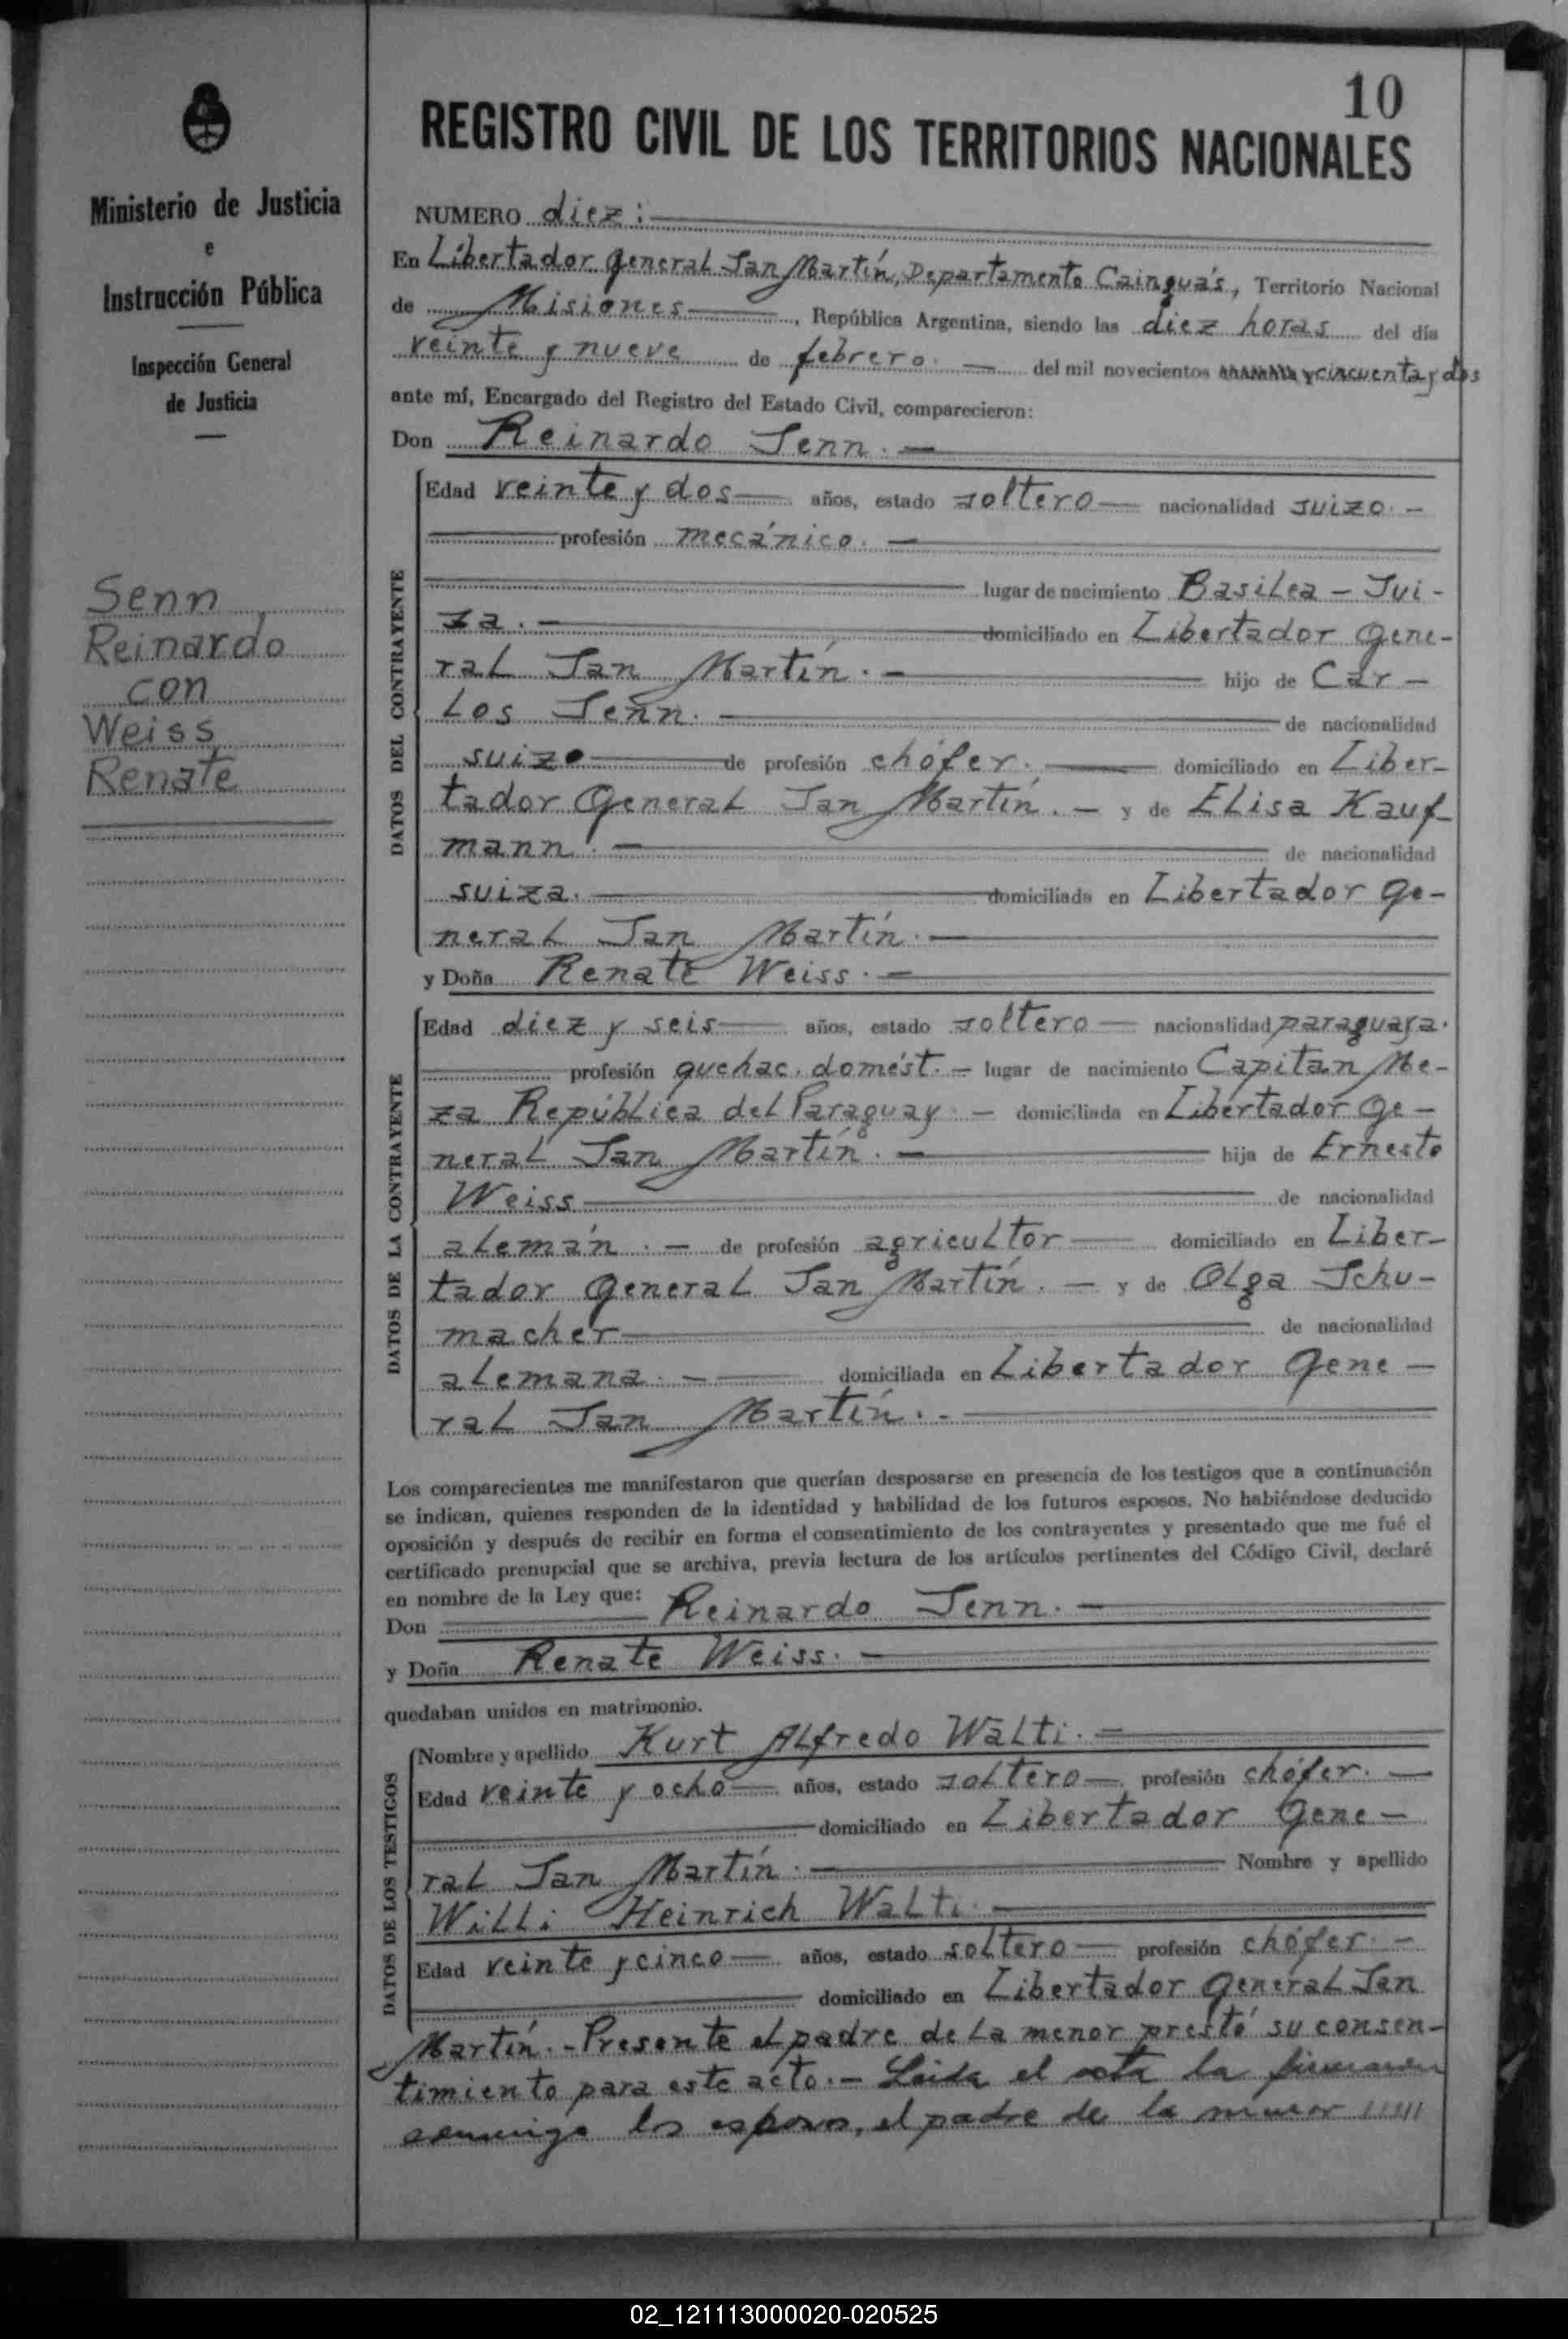 10
REGISTRO CIVIL DE LOS TERRITORIOS NACIONALES
Ministerio de Justicia
e
Instrucción Pública
Inspección General
de Justicia
Senn
Reinardo
con
Weiss
Renate
NUMERO diez:
En Libertador General San Martín, Departamento Cainguás, Territorio Nacional
de Misiones, República Argentina, siendo las diez horas del día
veinte y nueve de febrero. del mil novecientos y cincuenta y dos
ante mí, Encargado del Registro del Estado Civil, comparecieron:
Don Reinardo Senn.
DATOS DEL CONTRAYENTE
Edad veinte y dos años, estado soltero nacionalidad suizo.
profesión mecánico.
lugar de nacimiento Basilea - Sui-
za. domiciliado en Libertador Gene-
ral San Martín. hijo de Car-
los Senn. de nacionalidad
suizo de profesión chófer. domiciliado en Liber-
tador General San Martín. y de Elisa Kauf-
mann. de nacionalidad
suiza. domiciliada en Libertador Ge-
neral San Martín.
y Doña Renate Weiss.
DATOS DE LA CONTRAYENTE
Edad diez y seis años, estado soltero nacionalidad paraguaya.
profesión quehac. domést. lugar de nacimiento Capitan Me-
za República del Paraguay. domiciliada en Libertador Ge-
neral San Martín. hija de Ernesto
Weiss de nacionalidad
alemán. de profesión agricultor domiciliado en Liber-
tador General San Martín. y de Olga Schu-
macher de nacionalidad
alemana. domiciliada en Libertador Gene-
ral San Martín.
Los comparecientes me manifestaron que querían desposarse en presencia de los testigos que a continuación
se indican, quienes responden de la identidad y habilidad de los futuros esposos. No habiéndose deducido
oposición y después de recibir en forma el consentimiento de los contrayentes y presentado que me fué el
certificado prenupcial que se archiva, previa lectura de los artículos pertinentes del Código Civil, declaré
en nombre de la Ley que:
Don Reinardo Senn.
y Doña Renate Weiss.
quedaban unidos en matrimonio.
DATOS DE LOS TESTIGOS
Nombre y apellido Kurt Alfredo Wälti.
Edad veinte y ocho años, estado soltero profesión chófer.
domiciliado en Libertador Gene-
ral San Martín. Nombre y apellido
Willi Heinrich Walti.
Edad veinte y cinco años, estado soltero profesión chófer.
domiciliado en Libertador General San
Martín. - Presente el padre de la menor prestó su consen-
timiento para este acto. - Leida el acta la firmaron
conmigo los esposos, el padre de la menor
02_121113000020-020525